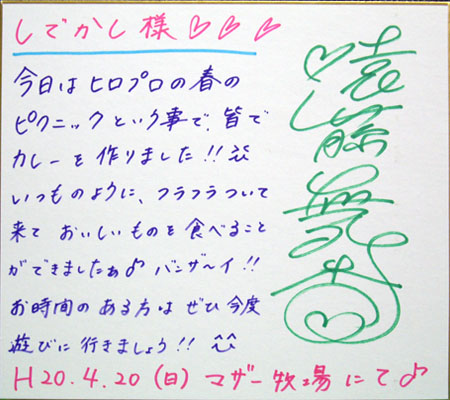 しでかし様♡♡♡
今日はヒロプロの春の
ピクニックという事で、皆で
カレーを作りました!!
いつものように、フラフラついて
来ておいしいものを食べること
ができましたぁ♪バンザ〜イ!!
お時間のある方はぜひ今度
遊びに行きましょう!!
H20.4.20(日)マザー牧場にて♪